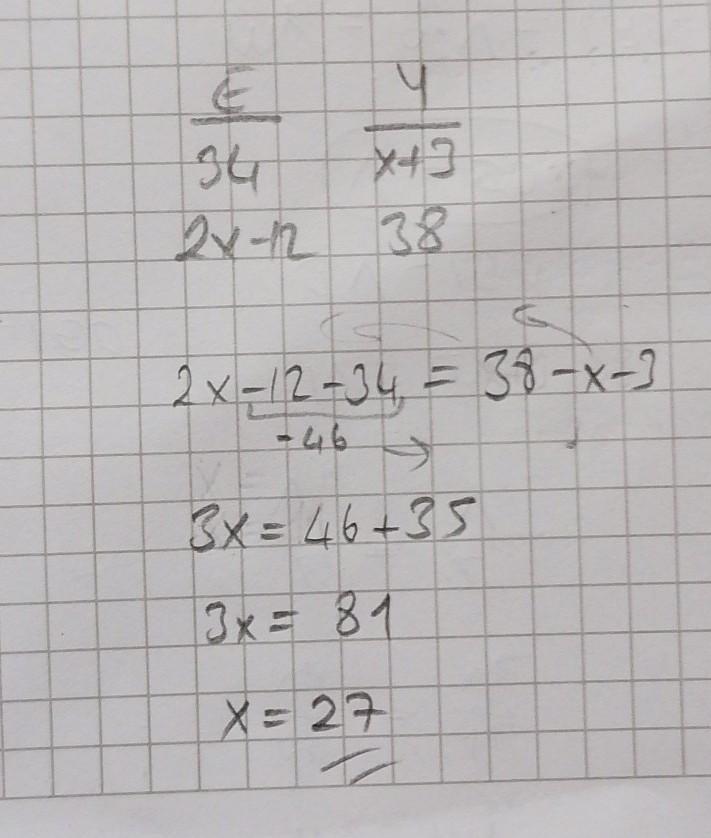 E Y
34 x+3
2x-12 38
2x-12-34 = 38-x-3
-46
3x = 46+35
3x = 81
x = 27